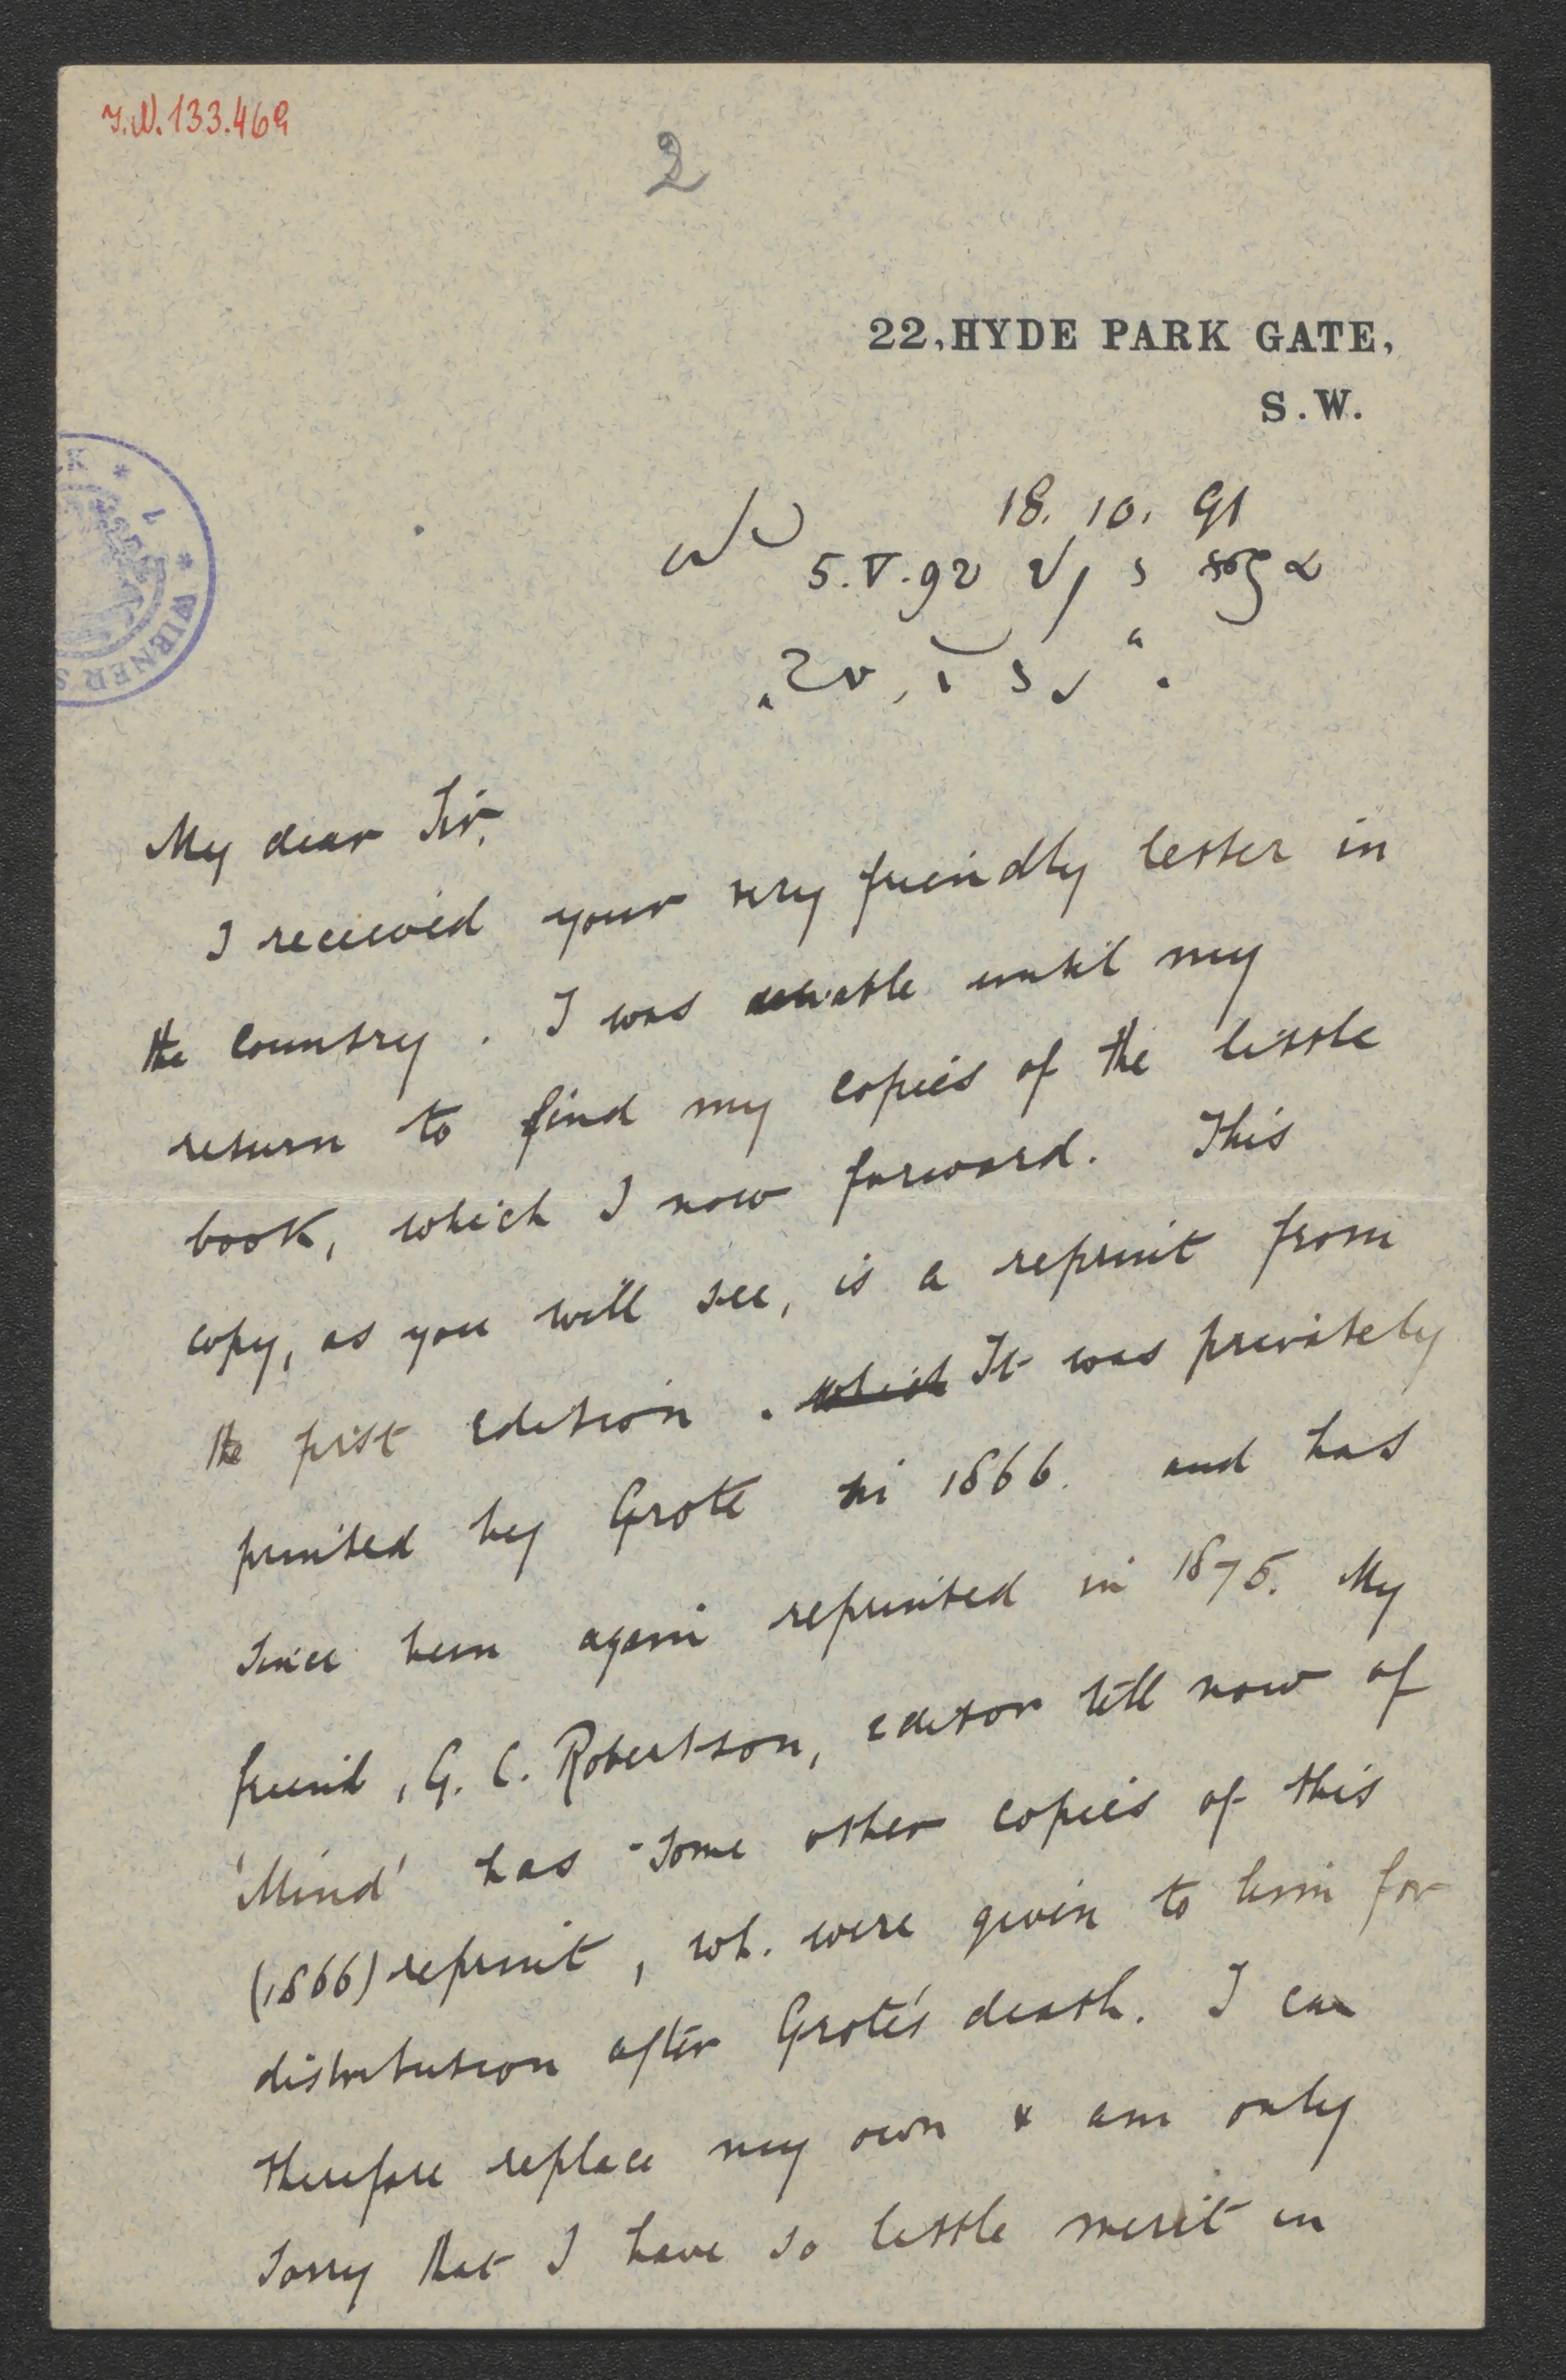 I.N. 133.469
2
22, HYDE PARK GATE,
S.W.
18. 10. 91
5.V.92
* WIENER S
My dear Sir,
I received your very friendly letter in
the country. I was unable until my
return to find my copies of the little
book, which I now forward. This
copy, as you will see, is a reprint from
the first edition. which It was privately
printed by Grote in 1866. and has
since been again reprinted in 1875. My
friend, G. C. Robertson, editor till now of
'Mind' has some other copies of this
(1866) reprint, wh. were given to him for
distribution after Grote's death. I can
therefore replace my own & am only
sorry that I have so little merit in